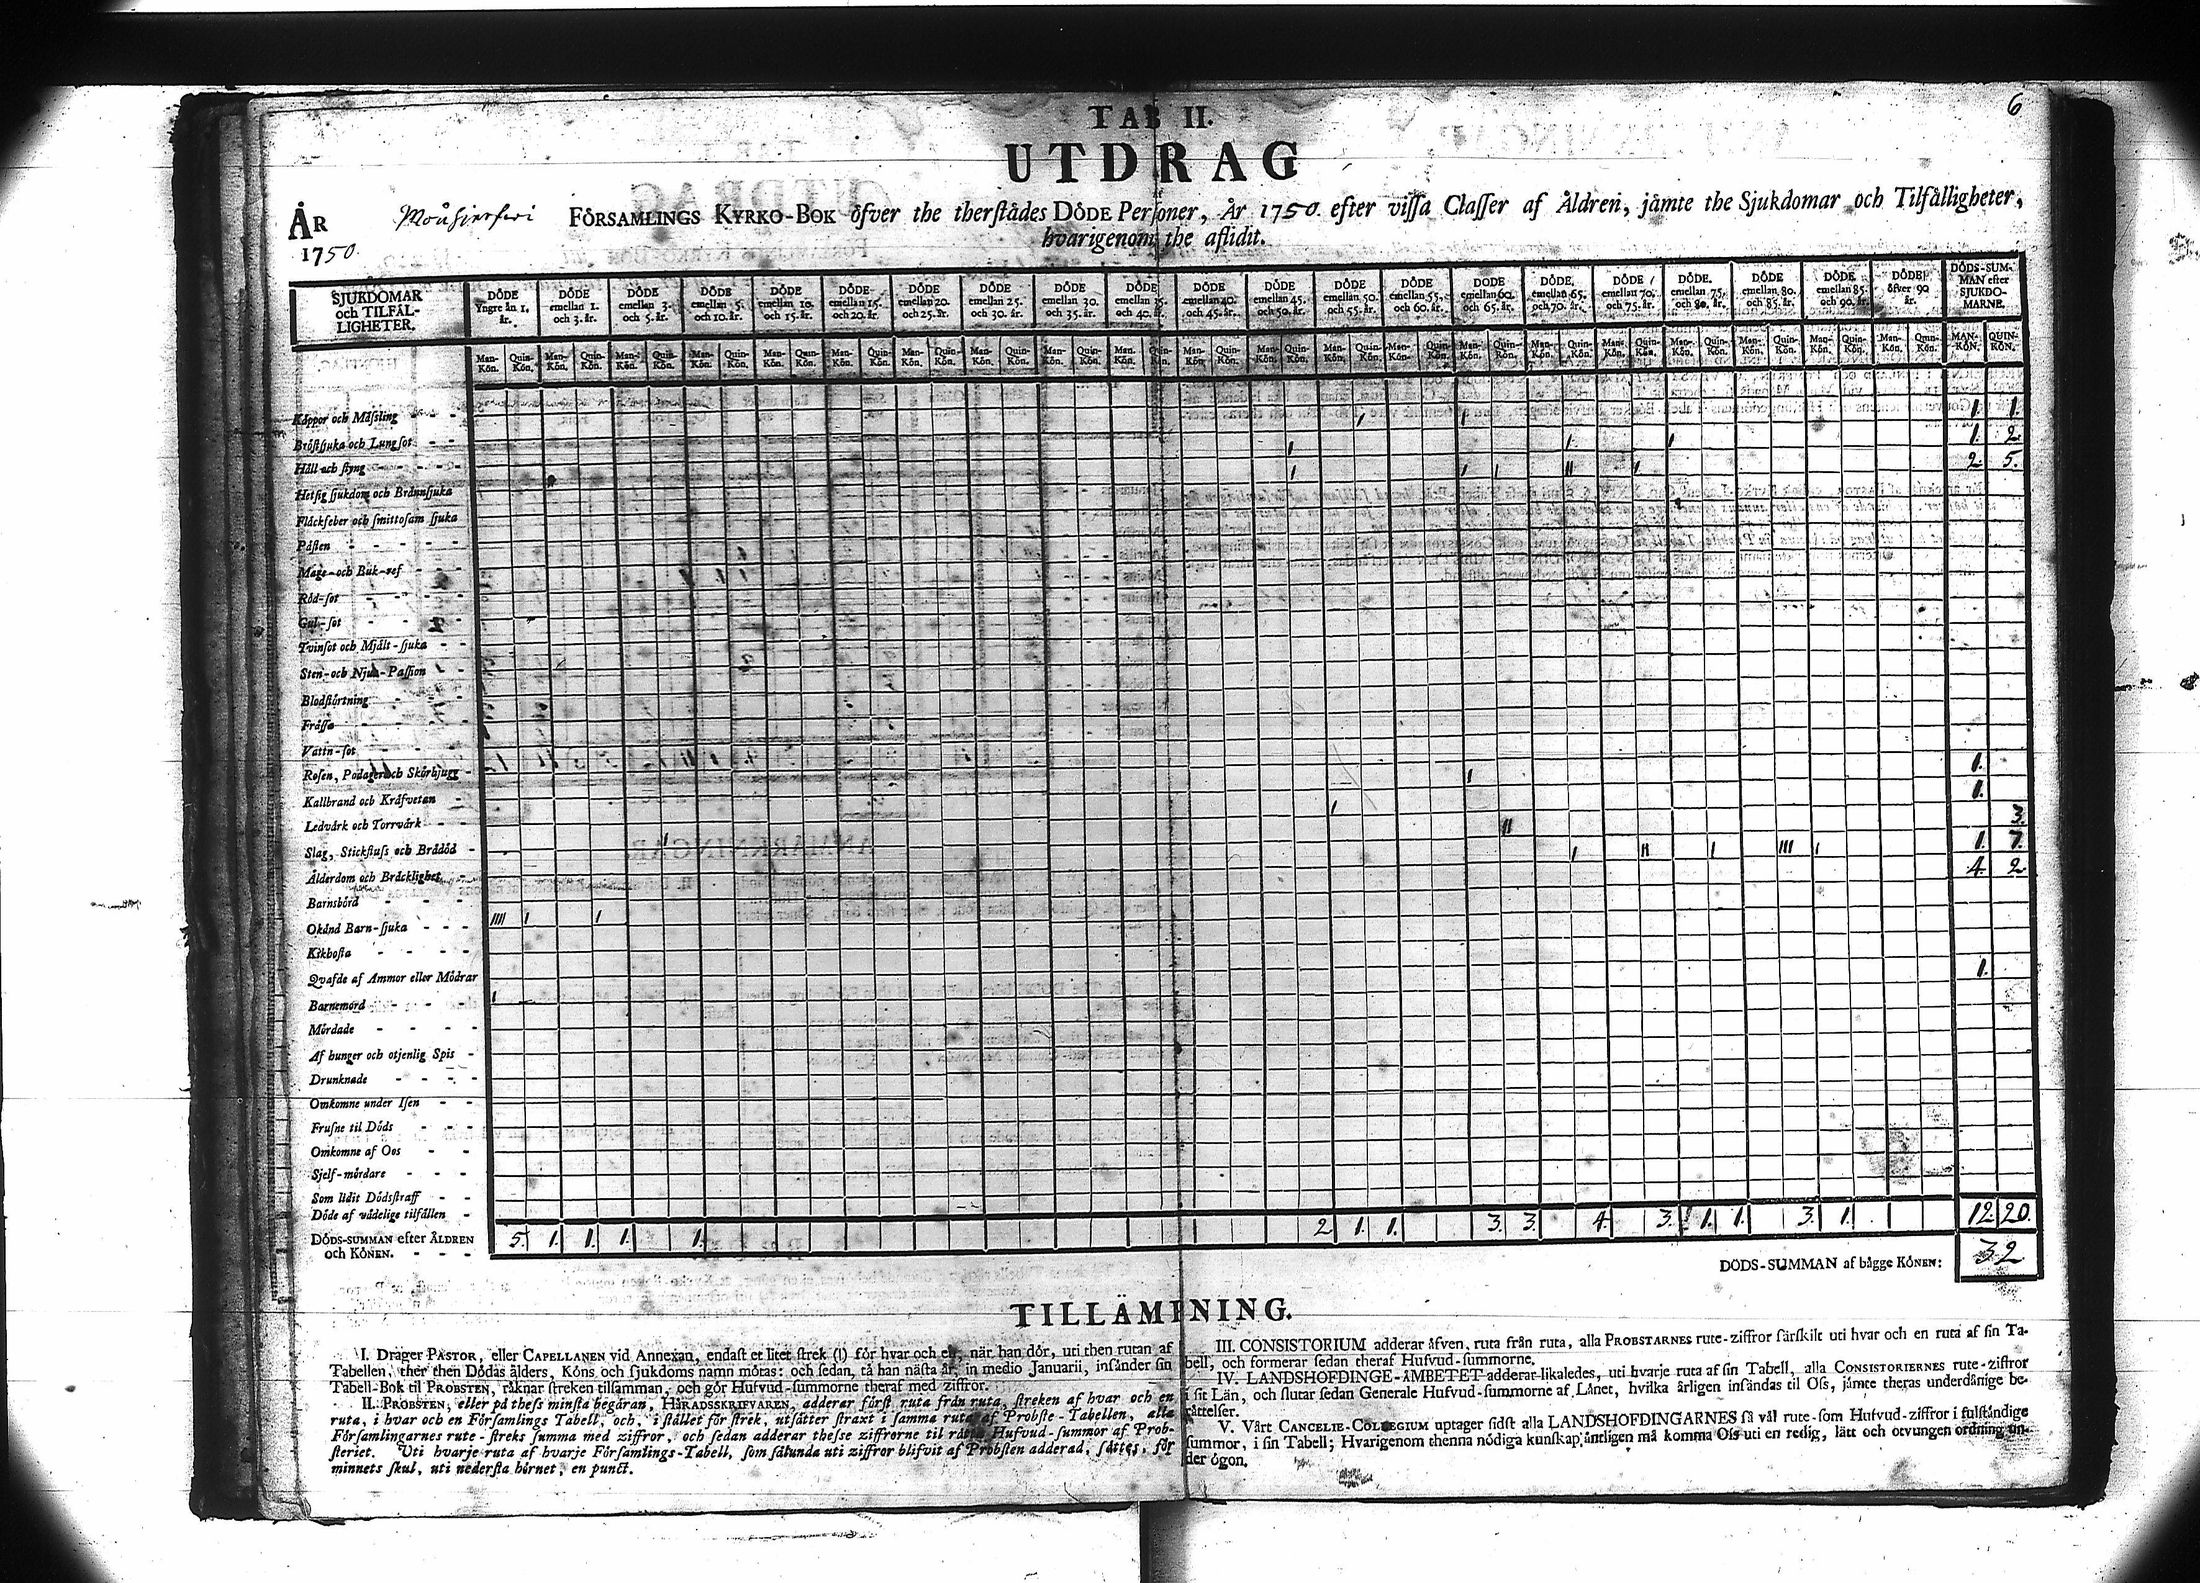 6
TAB II.
UTDRAG
af
ÅR 1750.
FÖRSAMLINGS KYRKO-BOK öfver the therstädes DÖDE Personer, År 1750. efter vissa Classer af Åldren, jämte the Sjukdomar och Tilfälligheter,
hvarigenom the aflidit.
SJUKDOMAR och TILFÄL-LIGHETER.
DÖDE Yngre än 1. år.
DÖDE emellan 1. och 3. år.
DÖDE emellan 3. och 5. år.
DÖDE emellan 5. och 10. år.
DÖDE emellan 10. och 15. år.
DÖDE emellan 15. och 20. år.
DÖDE emellan 20. och 25. år.
DÖDE emellan 25. och 30. år.
DÖDE emellan 30. och 35. år.
DÖDE emellan 35. och 40. år.
DÖDE emellan 40. och 45. år.
DÖDE emellan 45. och 50. år.
DÖDE emellan 50. och 55. år.
DÖDE emellan 55. och 60. år.
DÖDE emellan 60. och 65. år.
DÖDE emellan 65. och 70. år.
DÖDE emellan 70. och 75. år.
DÖDE emellan 75. och 80. år.
DÖDE emellan 80. och 85. år.
DÖDE emellan 85. och 90. år.
DÖDE öfver 90 år.
DÖDS-SUM-MAN efter SJUKDO-MARNE.
Man-Kön. Quin-Kön. Man-Kön. Quin-Kön. Man-Kön. Quin-Kön. Man-Kön. Quin-Kön. Man-Kön. Quin-Kön. Man-Kön. Quin-Kön. Man-Kön. Quin-Kön. Man-Kön. Quin-Kön. Man-Kön. Quin-Kön. Man-Kön. Quin-Kön. Man-Kön. Quin-Kön. Man-Kön. Quin-Kön. Man-Kön. Quin-Kön. Man-Kön. Quin-Kön. Man-Kön. Quin-Kön. Man-Kön. Quin-Kön. Man-Kön. Quin-Kön. Man-Kön. Quin-Kön. Man-Kön. Quin-Kön. Man-Kön. Quin-Kön. Man-Kön. Quin-Kön. MAN-KÖN. QUIN-KÖN.
Koppor och Mässling I I 1. 1.
Bröstsjuka och Lungsot I I I 1. 2.
Håll och styng I I I II I 2. 5.
Hetsig sjukdom och Brännsjuka
Fläckfeber och smittosam sjuka
Pästen
Mage- och Buk-ref
Röd-sot
Gul-sot
Tvinsot och Mjält-sjuka
Sten- och Njur-Passion
Blodstörtning
Frässa
Vattn-sot
Rosen, Podager och Skörbjugg I 1.
Kallbrand och Kräfvetan I 1.
Ledvärk och Torrvärk II 3.
Slag, Stickfluss och Brådöd I I II I III I 1. 7.
Ålderdom och Bräcklighet 4. 2.
Barnsbörd
Okänd Barn-sjuka IIII I I
Kikhosta
Qvafde af Ammor eller Mödrar 1.
Barnemord I
Mördade
Af hunger och otjenlig Spis
Drunknade
Omkomne under Isen
Frusne til Döds
Omkomne af Oos
Sjelf-mördare
Som lidit Dödsstraff
Döde af vådelige tilfällen
DÖDS-SUMMAN efter ÅLDREN och KÖNEN. 5. 1. 1. 1. 1. 2 1. 1. 3. 3. 4. 3. 1. 1. 3. 1. 12. 20.
DÖDS-SUMMAN af bägge KÖNEN: 32
TILLÄMPNING.
I. Drager PASTOR, eller CAPELLANEN vid Annexan, endast et litet strek (I) för hvar och en, när han dör, uti then rutan af
Tabellen, ther then Dödas ålders, Köns och sjukdoms namn mötas: och sedan, tå han nästa år, in medio Januarii, insänder sin
Tabell-Bok til PROBSTEN, räknar streken tilsamman, och gör Hufvud-summorne theraf med ziffror.
II. PROBSTEN, eller på thess minsta begäran, HÄRADSSKRIFVAREN, adderar först ruta från ruta, streken af hvar och en
ruta, i hvar och en Församlings Tabell, och, i stället för strek, utsätter straxt i samma ruta af Probste-Tabellen, alla
Församlingarnes rute-streks summa med ziffror, och sedan adderar thesse ziffrorne til rätta Hufvud-summor af Prob-
steriet. Uti hvarje ruta af hvarje Församlings-Tabell, som sålunda uti ziffror blifvit af Probsten adderad, sättes, för
minnets skul, uti nedersta hörnet, en punct.
III. CONSISTORIUM adderar äfven, ruta från ruta, alla PROBSTARNES rute-ziffror särskilt uti hvar och en ruta af sin Ta-
bell, och formerar sedan theraf Hufvud-summorne.
IV. LANDSHOFDINGE-ÄMBETET adderar likaledes, uti hvarje ruta af sin Tabell, alla CONSISTORIERNES rute-ziffror
i sit Län, och slutar sedan Generale Hufvud-summorne af Länet, hvilka årligen insändas til Oss, jämte theras underdånige be-
rättelser.
V. Vårt CANCELIE-COLLEGIUM uptager sidst alla LANDSHOFDINGARNES så väl rute- som Hufvud-ziffror i fulständige
summor, i sin Tabell; Hvarigenom thenna nödiga kunskap äntligen må komma Oss uti en redig, lätt och otvungen ordning un-
der ögon.